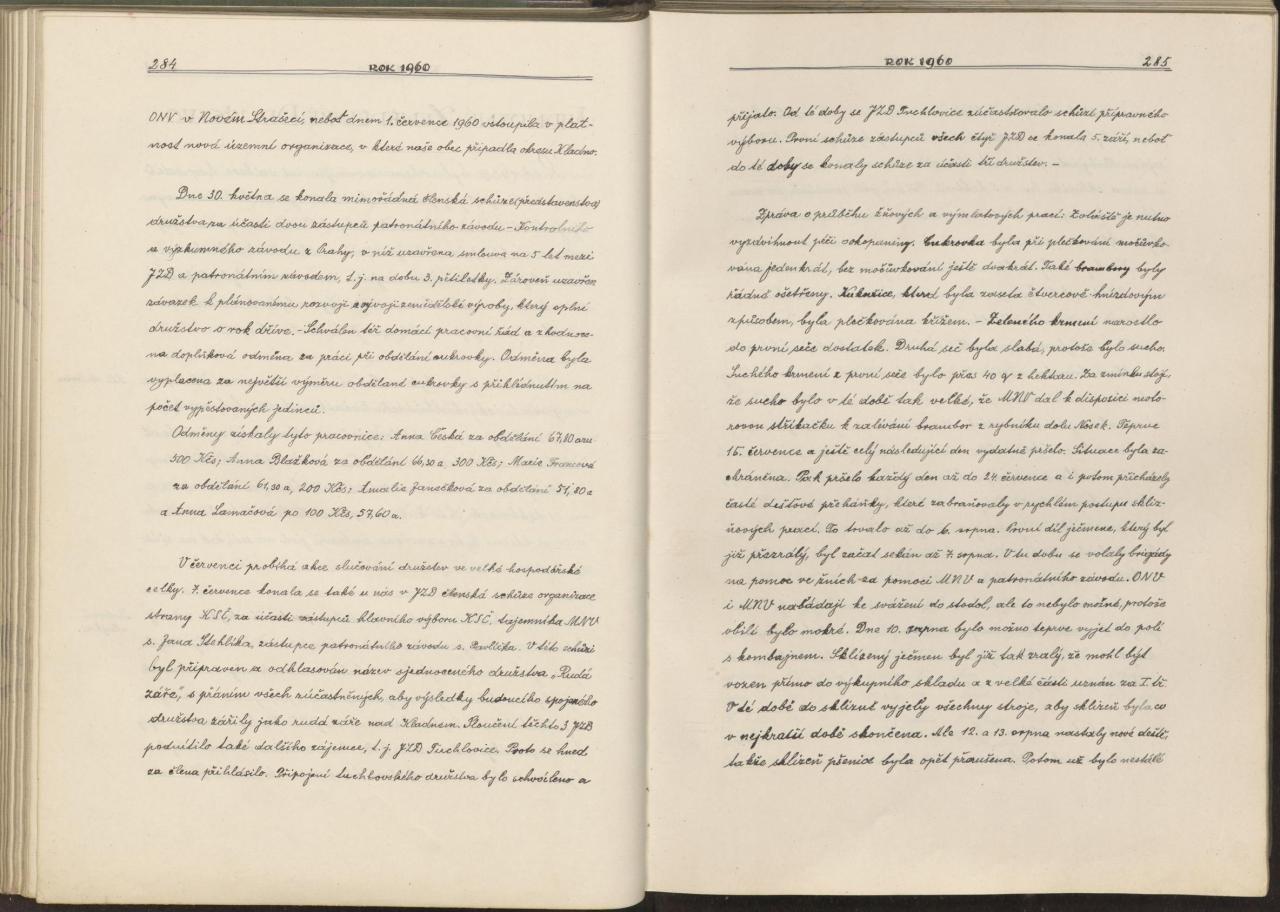 284
ROK 1960
ONV v Novém Strašecí, neboť dnem 1. července 1960 vstoupila v plat-
nost nová územní organizace, v které naše obec připadla okresu Kladno.
Dne 30. května se konala mimořádná členská schůze (představenstva)
družstva za účasti dvou zástupců patronátního závodu - Kontrolního
a výzkumného závodu z Prahy, v níž uzavřena smlouva na 5 let mezi
JZD a patronátním závodem, t. j. na dobu 3. pětiletky. Zároveň uzavřen
závazek k plánovanému rozvoji zemědělské výroby, který splní
družstvo o rok dříve. - Schválen též domácí pracovní řád a zhodnoce-
na doplňková odměna za práci při obdělání cukrovky. Odměna byla
vyplacena za největší výměru obdělané cukrovky s přihlédnutím na
počet vypěstovaných jedinců.
Odměny získaly tyto pracovnice: Anna Česká za obdělání 67,80 aru
500 Kčs; Anna Blažková za obdělání 66,30 a, 300 Kčs; Marie Francová
za obdělání 61,30 a, 200 Kčs; Amalie Janečková za obdělání 51,80 a
a Anna Lamačová po 100 Kčs, 57,60 a.
V červenci probíhá akce slučování družstev ve velké hospodářské
celky. 7. července konala se také u nás v JZD členská schůze organizace
strany KSČ, za účasti zástupců hlavního výboru KSČ, tajemníka MNV
s. Jana Stehlíka, zástupce patronátního závodu s. Pavlíčka. V této schůzi
byl připraven a odhlasován název sjednoceného družstva „Rudá
záře“, s přáním všech zúčastněných, aby výsledky budoucího spojeného
družstva zářily jako rudá záře nad Kladnem. Sloučení těchto 3 JZD
podnítilo také dalšího zájemce, t. j. JZD Tuchlovice. Proto se hned
za člena přihlásilo. Připojení tuchlovského družstva bylo schváleno a
ROK 1960
285
přijato. Od té doby se JZD Tuchlovice zúčastňovalo schůzí přípravného
výboru. První schůze zástupců všech čtyř JZD se konala 5. září, neboť
do té doby se konaly schůze za účasti tří družstev. -
Zpráva o průběhu žňových a výmlatových prací: Zvláště je nutno
vyzdvihnout péči o okopaniny. Cukrovka byla při plečkování močůvko-
vána jedenkrát, bez močůvkování ještě dvakrát. Také brambory byly
řádně ošetřeny. Kukuřice, která byla zaseta čtvercově hnízdovým
způsobem, byla plečkována křížem. - Zeleného krmení narostlo
do první seče dostatek. Druhá seč byla slabá, protože bylo sucho.
Suchého krmení z první seče bylo přes 40 q z hektaru. Za zmínku stojí,
že sucho bylo v té době tak velké, že MNV dal k disposici moto-
rovou stříkačku k zalívání brambor z rybníku dolu Nosek. Teprve
15. července a ještě celý následující den vydatně pršelo. Situace byla za-
chráněna. Pak pršelo každý den až do 24. července a i potom přicházely
časté dešťové přeháňky, které zabraňovaly v rychlém postupu skliz-
ňových prací. To trvalo až do 6. srpna. První díl ječmene, který byl
již přezrálý, byl začat sekán až 7. srpna. V tu dobu se volaly brigády
na pomoc ve žních za pomoci MNV a patronátního závodu. ONV
i MNV nabádají ke svážení do stodol, ale to nebylo možné, protože
obilí bylo mokré. Dne 10. srpna bylo možno teprve vyjet do polí
s kombajnem. Sklizený ječmen byl již tak zralý, že mohl být
vozen přímo do výkupního skladu a z velké části uznán za I. tř.
V té době do sklizně vyjely všechny stroje, aby sklizeň byla co
v nejkratší době skončena. Ale 12. a 13. srpna nastaly nové deště,
takže sklizeň pšenice byla opět přerušena. Potom už bylo nestálé